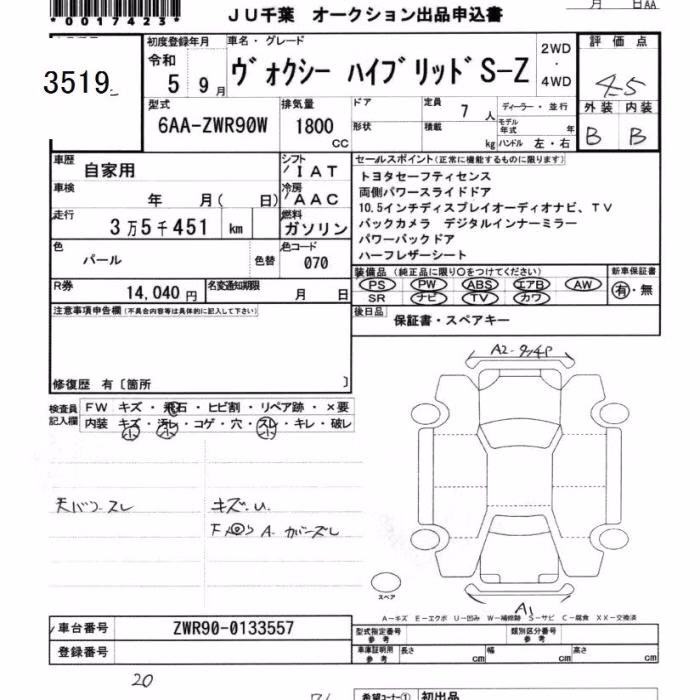 *00017423*
JU千葉 オークション出品申込書
月 日AA
3519
初度登録年月
令和
5 9月
車名・グレード
ヴォクシー ハイブリッドS-Z
2WD
・
4WD
評価点
4.5
外装 内装
B B
型式
6AA-ZWR90W
排気量
1800
CC
ドア
形状
定員 7人
積載 kg
ディーラー・並行
モデル年式 年
ハンドル 左・右
車歴
自家用
シフト
IAT
車検
年 月( 日)
冷房
AAC
走行
3万5千451 km
燃料
ガソリン
色
パール
色替
色コード
070
R券
14,040円
名変通知期限
月 日
セールスポイント(正常に機能するものに限ります)
トヨタセーフティセンス
両側パワースライドドア
10.5インチディスプレイオーディオナビ、TV
バックカメラ デジタルインナーミラー
パワーバックドア
ハーフレザーシート
装備品 (純正品に限り○をつけてください)
PS PW ABS エアB AW
SR ナビ TV カワ
新車保証書
有・無
後日品
保証書・スペアキー
注意事項申告欄(不具合内容等は具体的に記入して下さい)
修復歴 有〔箇所 〕
検査員
記入欄
FW キズ・飛石・ヒビ割・リペア跡・×要
内装 キズ・汚レ・コゲ・穴・スレ・キレ・破レ
小 小 小
キズ.U.
A2
A1
スペア
A-キズ E-エクボ U-凹み W-補修跡 S-サビ C-腐食 XX-交換済
車台番号
ZWR90-0133557
登録番号
型式指定番号
参考
類別区分番号
参考
車庫証明用
参考
長さ cm 幅 cm 高さ cm
20
希望コーナー① 初出品